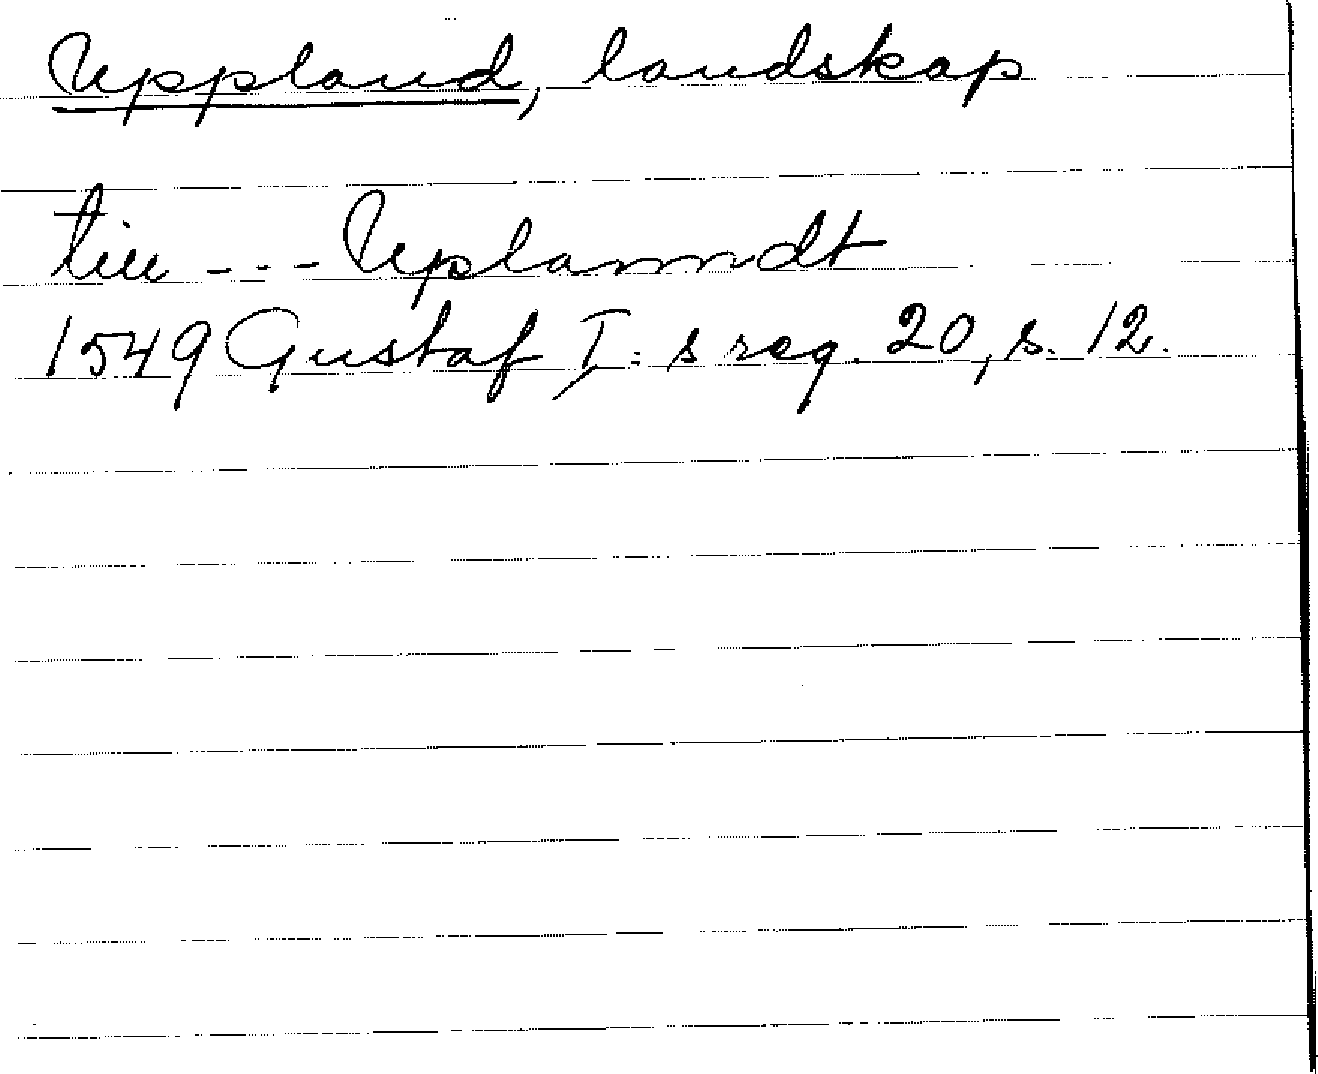 Uppland, landskap
till --- Uplanndt
1549 Gustaf I:s reg. 20, s. 12.